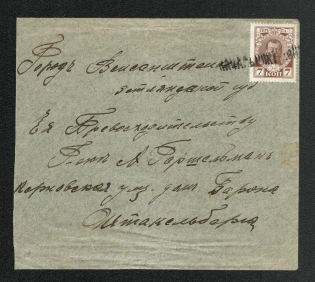 Городъ Вейсенштейнъ
Эстляндской губ
Ея Превосходительству
Г-жѣ А Горшельманъ
улц. домъ Барона
Штакельберга
7 КОП 7